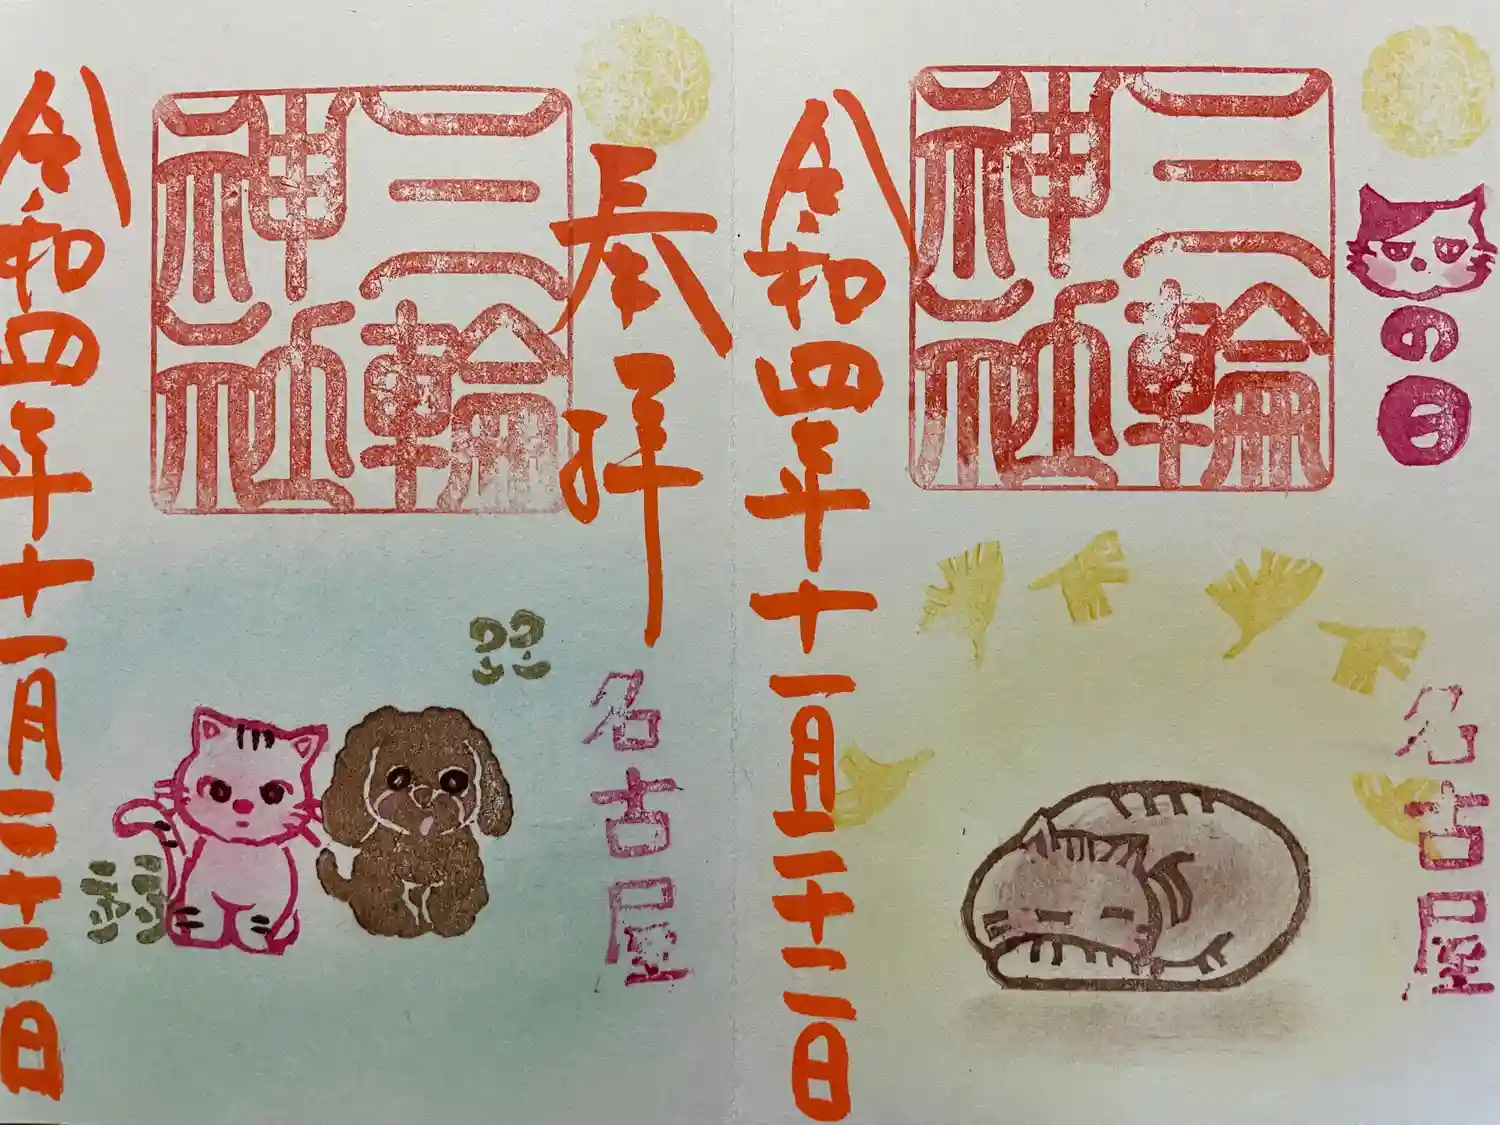 の日
名古屋
三輪
神社
令和四年十一月二十二日
奉拝
名古屋
三輪
神社
令和四年十一月二十二日